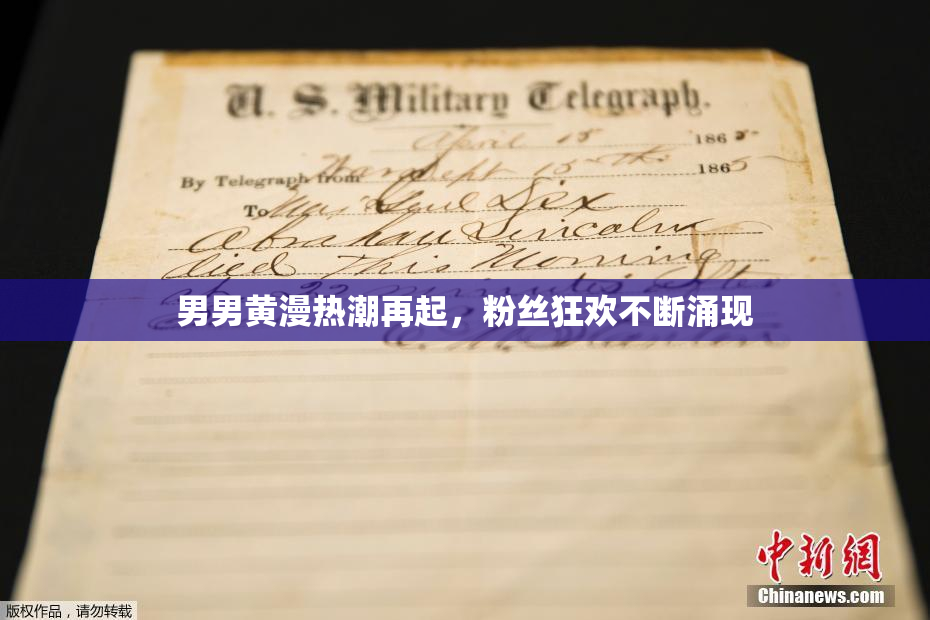 U. S. Military Telegraph.
April 15 1865
By Telegraph from War Dept 15th 1865
To Maj Genl Dix
Abraham Lincoln
died This Morning
at 22 minutes after
男男黄漫热潮再起，粉丝狂欢不断涌现
E. M. Stanton
中新網
Chinanews.com
版权作品，请勿转载